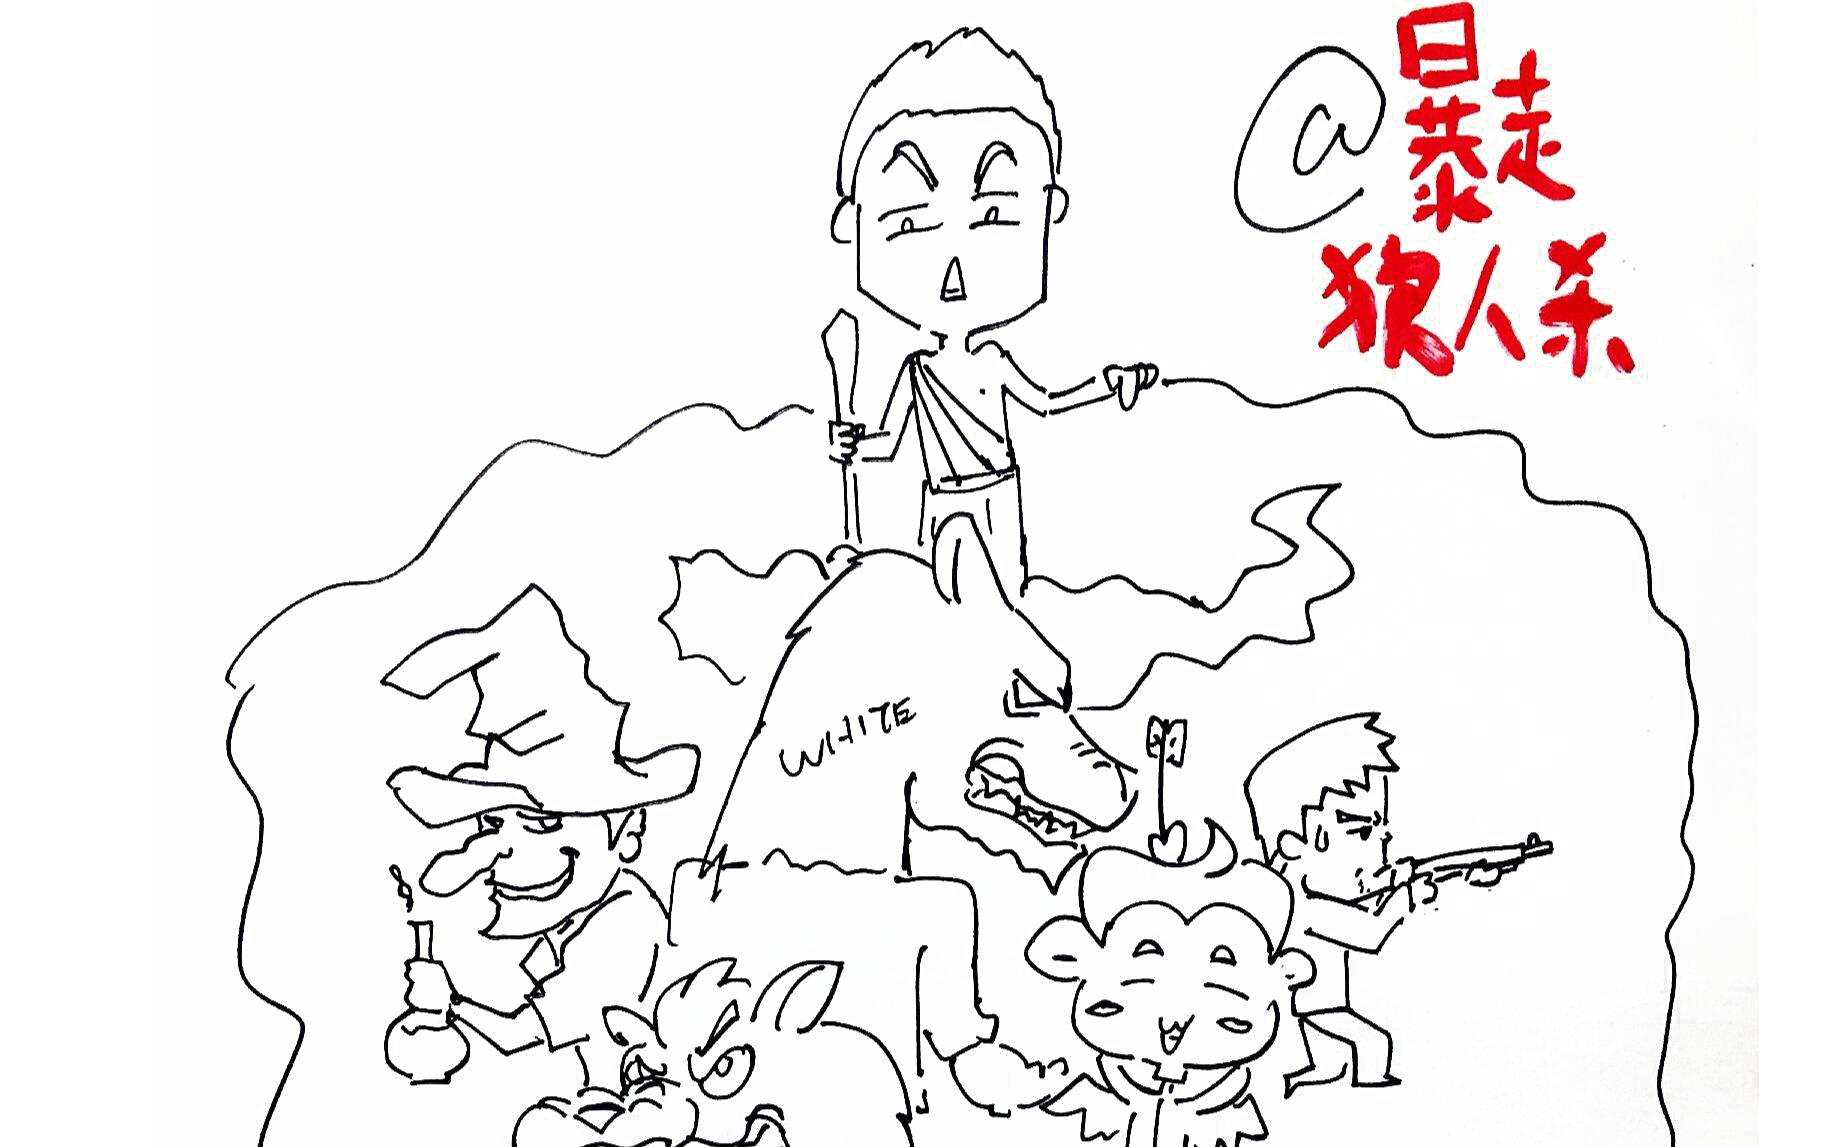 @暴走
狼人杀
WHITE